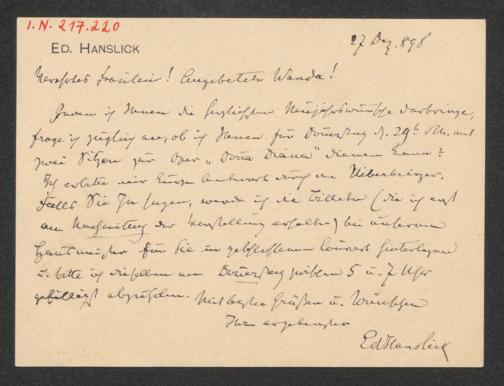 I.N. 217.220
ED. HANSLICK
27 Dez. 898
Verehrtes Fräulein! Angebetete Wanda!
Indem ich Ihnen die herzlichsten Neujahrswünsche darbringe,
frage ich zugleich an, ob ich Ihnen für Donerstag d. 29t. dM. mit
zwei Sitzen zur Oper „Dona Diana" dienen kann?
Ich erbitte mir kurze Antwort durch den Überbringer.
Falls Sie Ja sagen, werde ich die Billette (die ich erst
am Nachmittag der Vorstellung erhalte) bei unserem
Hausmeister für Sie in geschlossenem Couvert hinterlegen
u. bitte ich dieselben am Donerstag zwischen 5 u. 7 Uhr
gefälligst abzuholen. Mit besten Grüßen u. Wünschen
Ihr ergebenster
EdHanslick